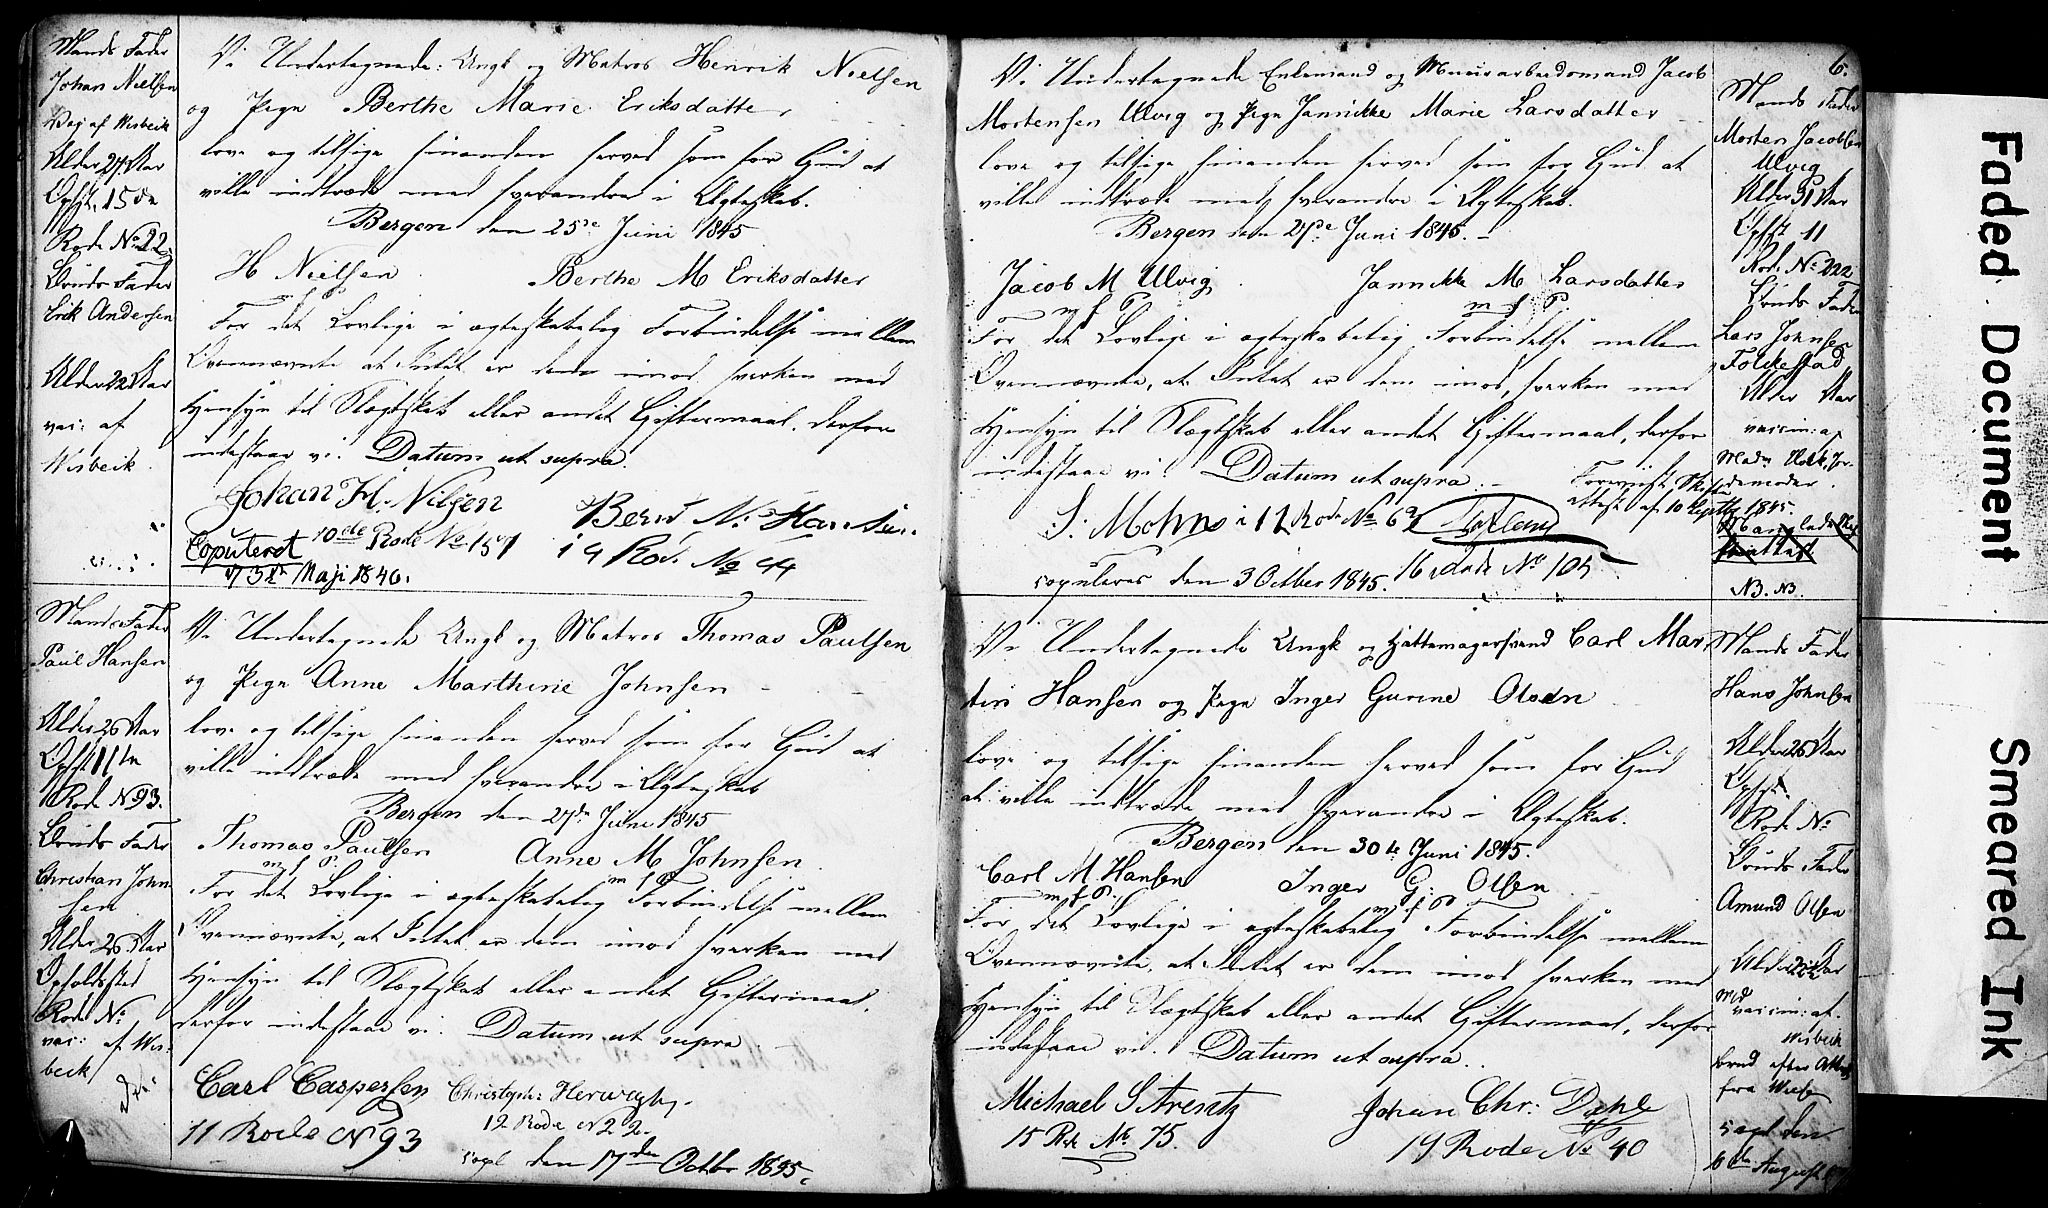 Mands Fader
Johan Nielsen
Vac: af Wisbeik
Alder 27 Aar
Opst. 15de
Rode No 22
Bruds Fader
Erik Andersen
Alder 22 Aar
vac: af
Wisbeik
Vi Undertegnede: Ungk og Matros Henrik Nielsen
og Pige Berthe Marie Eriksdatter
love og tilsige hinanden herved som for Gud at
ville indtræde med hverandre i Ægteskab.
Bergen den 25de Juni 1845
H Nielsen Berthe M Eriksdatter
For det Lovlige i ægteskabelig Forbindelse mellem
Ovennævnte at Intet er dem imod hverken med
Hensyn til Slægtskab eller andet Giftermaal, derfor
indestaar vi. Datum ut supra.
Johan H. Nilsen Bernt N. Hansen
10de Rode No 157 i 9 Rod. No 44
Copuleret
d 31te Maji 1846.
Mands Fader
Paul Hansen
Alder 26 Aar
Opst 11te
Rode No 93.
Bruds Fader
Christian John
sen
Alder 26 Aar
Opholdsted
Rode No
vac: af Wis-
beck
Vi Undertegnede Ungk og Matros Thomas Paulsen
og Pige Anne Marthine Johnsen
love og tilsige hinanden herved som for Gud at
ville indtræde med hverandre i Ægteskab
Bergen den 27de Juni 1845
Thomas Paulsen Anne M Johnsen
m f P. m f P
For det Lovlige i ægteskabelig Forbindelse mellem
Ovennævnte, at Intet er dem imod hverken med
Hensyn til Slægtskab eller andet Giftermaal,
derfor indestaae vi. Datum ut supra
Carl Caspersen Christoph: Herwagh
11 Rode No 93 12 Rode No 22.
copl den 17den Octbr 1845.
6.
Vi Undertegnede Enkemand og Muurarbeidsmand Jacob
Mortensen Ulvig og Pige Jannikke Marie Larsdatter
love og tilsige hinanden herved som for Gud at
ville indtræde med hverandre i Ægteskab.
Bergen den 27de Juni 1845.
Jacob M Ulvig Jannikke M Larsdatter
m f P m f P.
For det Lovlige i ægteskabelig Forbindelse mellem
Ovennævnte, at Intet er dem imod, hverken med
Hensyn til Slægtskab eller andet Giftermaal, derfor
indestaae vi. Datum ut supra.
Foreviist Skifte
attest af 10 Septbr 1845.
S. Mohns i 12 Rode No 69
16 Rode No 105
copuleres den 3 Octber 1845.
Mands Fader
Morten Jacobsen
Ulvig
Alder 31 Aar
Opst 11
Rode No 222
Bruds Fader
Lars Johnsen
Folkestad
Alder Aar
vaccin: af
Madm Holk, Jor-
demoder
Mangler
NB. NB.
Vi Undertegnede Ungk og Hattemagersvend Carl Mar
tin Hansen og Pige Inger Gurine Olsen
love og tilsige hinanden herved som for Gud
at ville indtræde med hverandre i Ægteskab.
Bergen den 30te Juni 1845.
Carl M. Hansen Inger G: Olsen
m f P. m f P
For det Lovlige i ægteskabelig Forbindelse mellem
Ovennævnte, at Intet er dem imod hverken med
Hensyn til Slægtskab eller andet Giftermaal, derfor
indestaae vi. Datum ut supra.
Michael S Arentz Johan Chr: Dahle
15 Rode No 75. 19 Rode No 40
Mands Fader
Hans Johnsen
Alder 26 Aar
Opst.
Rode No
Bruds Fader
Amund Olsen
Alder 22 Aar
vaccin: af
Wisbeck
brud efter Attest
fra
copl den
6de August
Faded Document
Smeared Ink